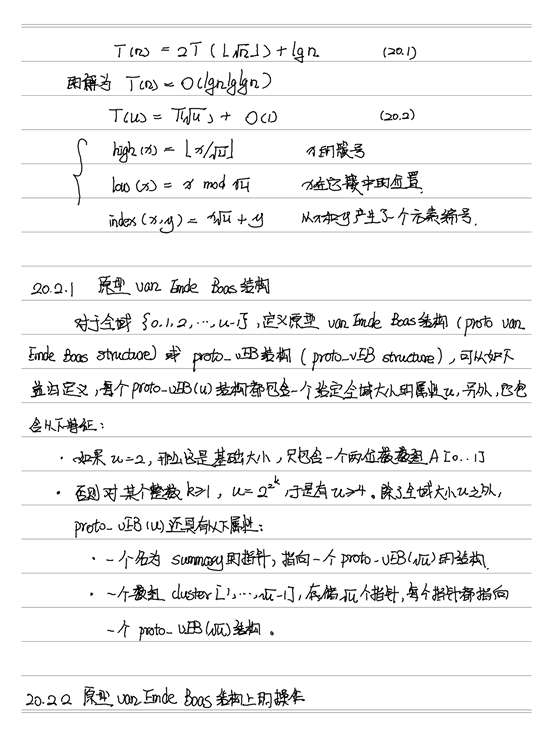 T(n) = 2T(⌊√n⌋) + lg n (20.1)
的解为 T(n) = O(lgnlglgn)
T(u) = T(√u) + O(1) (20.2)
high(x) = ⌊x/√u⌋ x的簇号
low(x) = x mod √u x在它簇中的位置.
index(x,y) = x√u + y 从x和y产生了一个元素编号.
20.2.1 原型 van Emde Boas 结构
对于全域 {0,1,2,…,u-1}, 定义原型 van Emde Boas 结构 (proto van
Emde Boas structure) 或 proto_vEB结构 (proto_vEB structure), 可以如下
递归定义, 每个proto_vEB(u)结构都包含一个给定全域大小的属性u, 另外, 它包
含以下特征:
· 如果 u=2, 那么它是基础大小, 只包含一个两位数数组 A[0..1]
· 否则对某个整数 k≥1, u=2^{2^k}, 于是有 u≥4。除了全域大小u之外,
proto_vEB(u)还具有以下属性:
· 一个名为 summary 的指针, 指向一个 proto_vEB(√u)的结构.
· 一个数组 cluster[0,…,√u-1], 存储√u个指针, 每个指针都指向
一个 proto_vEB(√u)结构。
20.2.2 原型 van Emde Boas 结构上的操作